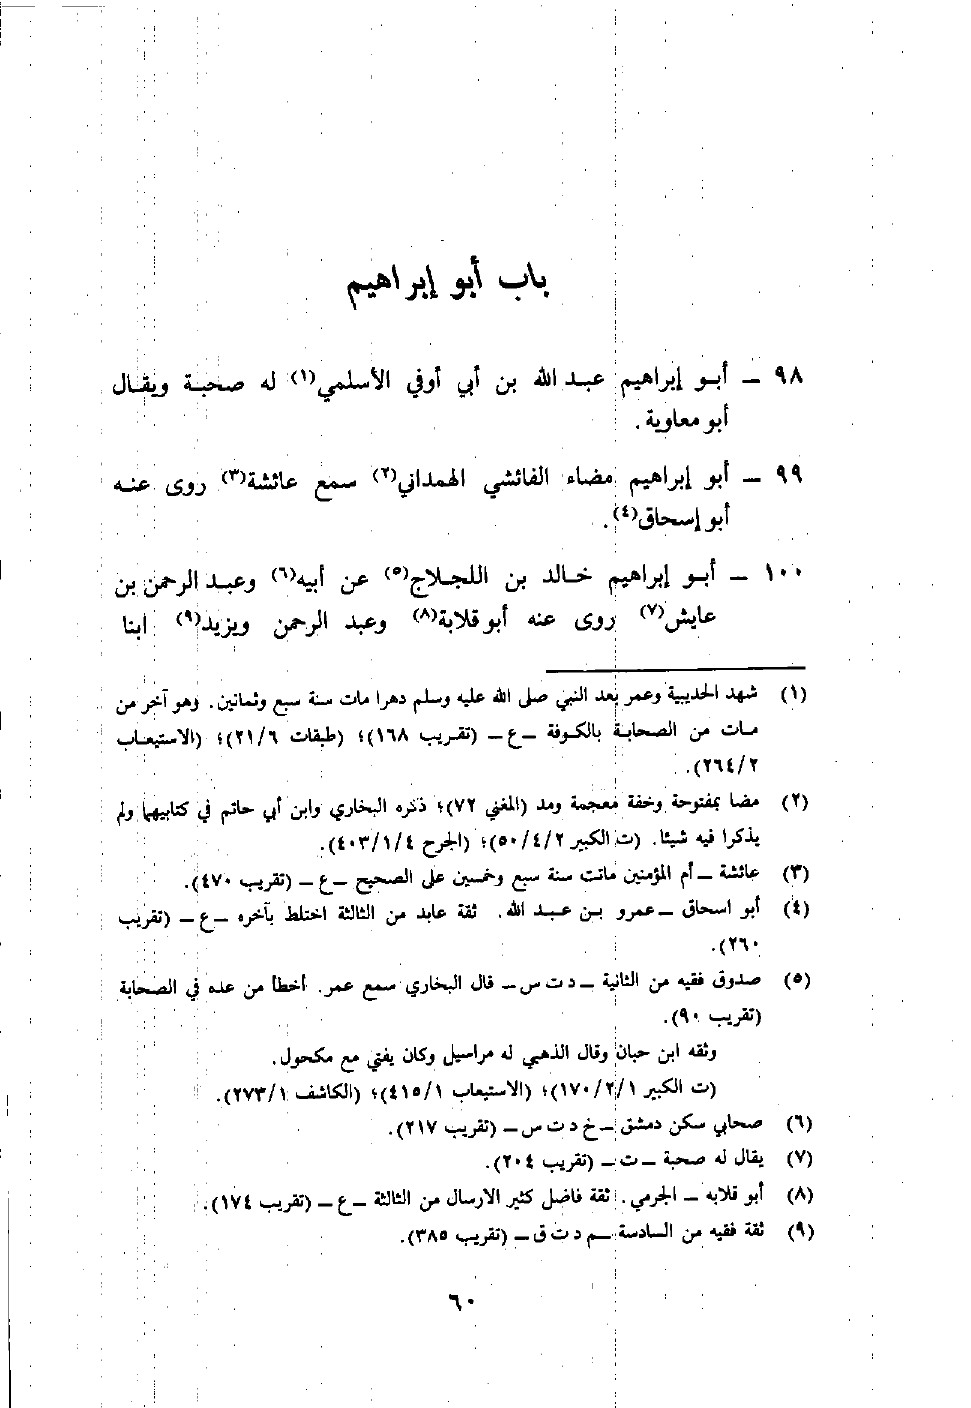 باب أبو إبراهيم
٩٨ ــ أبـو إبراهيم عبـد الله بن أبي أوفي الأسلمي(١) له صحبـة ويقـال
أبو معاوية .
٩٩ ــ أبو إبراهيم مضاء الفائشي الهمداني(٢) سمع عائشة(٣) روى عنـه
أبو إسحاق(٤).
١٠٠ ــ أبـو إبراهيم خـالد بن اللجـلاج(٥) عن أبيه(٦) وعبـد الرحمن بن
عايش(٧) روى عنه أبو قلابة(٨) وعبد الرحمن ويزيد(٩) ابنا
(١) شهد الحديبية وعمر بعد النبي صلى الله عليه وسلم دهرا مات سنة سبع وثمانين . وهو آخر من
مـات من الصحابـة بالكـوفة ــع ــ (تقـريب ١٦٨)؛ (طبقات ٢١/٦)؛ (الاستيعـاب
٢٦٤/٢).
(٢) مضا بمفتوحة وخفة معجمة ومد (المغني ٧٢)؛ ذكره البخاري وابن أبي حاتم في كتابيهما ولم
يذكرا فيه شيئا. (ت الكبير ٥٠/٤/٢)؛ (الجرح ٤٠٣/١/٤).
(٣) عائشة ــ أم المؤمنين ماتت سنة سبع وخمسين على الصحيح ــع ــ (تقريب ٤٧٠).
(٤) أبو اسحاق ــ عمرو بـن عـبـد الله . ثقة عابد من الثالثة اختلط بآخره ــع ــ (تقريب
٢٦٠).
(٥) صدوق فقيه من الثانية ــ د ت س ــ قال البخاري سمع عمر. أخطأ من عده في الصحابة
(تقريب ٩٠).
وثقه ابن حبان وقال الذهبي له مراسيل وكان يفتي مع مكحول.
(ت الكبير ١٧٠/٢/١)؛ (الاستيعاب ٤١٥/١)؛ (الكاشف ٢٧٣/١).
(٦) صحابي سكن دمشق ــ خ د ت س ــ (تقريب ٢١٧).
(٧) يقال له صحبة ــ ت ــ (تقريب ٢٠٤).
(٨) أبو قلابه ــ الجرمي. ثقة فاضل كثير الارسال من الثالثة ــ ع ــ (تقريب ١٧٤).
(٩) ثقة فقيه من السادسة ــ م د ت ق ــ (تقريب ٣٨٥).
٦٠